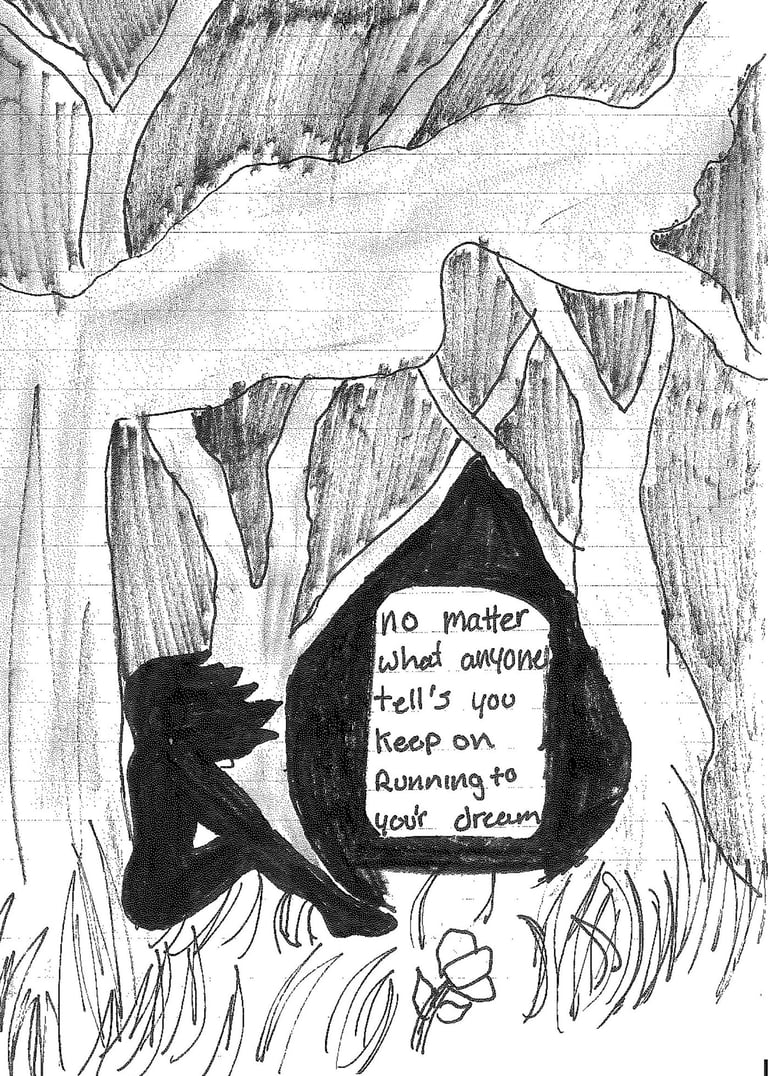 no matter
what anyone
tell's you
keep on
Running to
you'r dream